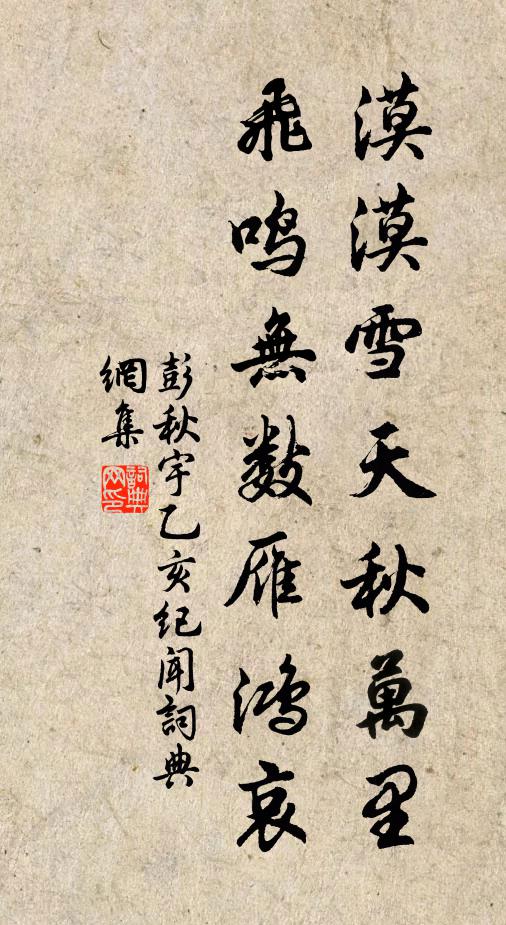 漠漠雪天秋萬里
飛鳴無數雁鴻哀
彭秋宇乙亥纪闻詞典
網集
詞典
网印